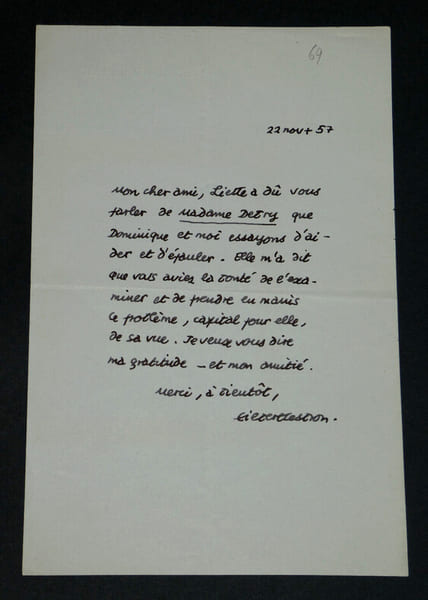 69
22 nov + 57
Mon cher ami, Liette a dû vous
parler de Madame Detry que
Dominique et moi essayons d'ai-
der et d'épauler. Elle m'a dit
que vous aviez la bonté de l'exa-
miner et de prendre en mains
le problème, capital pour elle,
de sa vue. Je veux vous dire
ma gratitude - et mon amitié.
Merci, à bientôt,